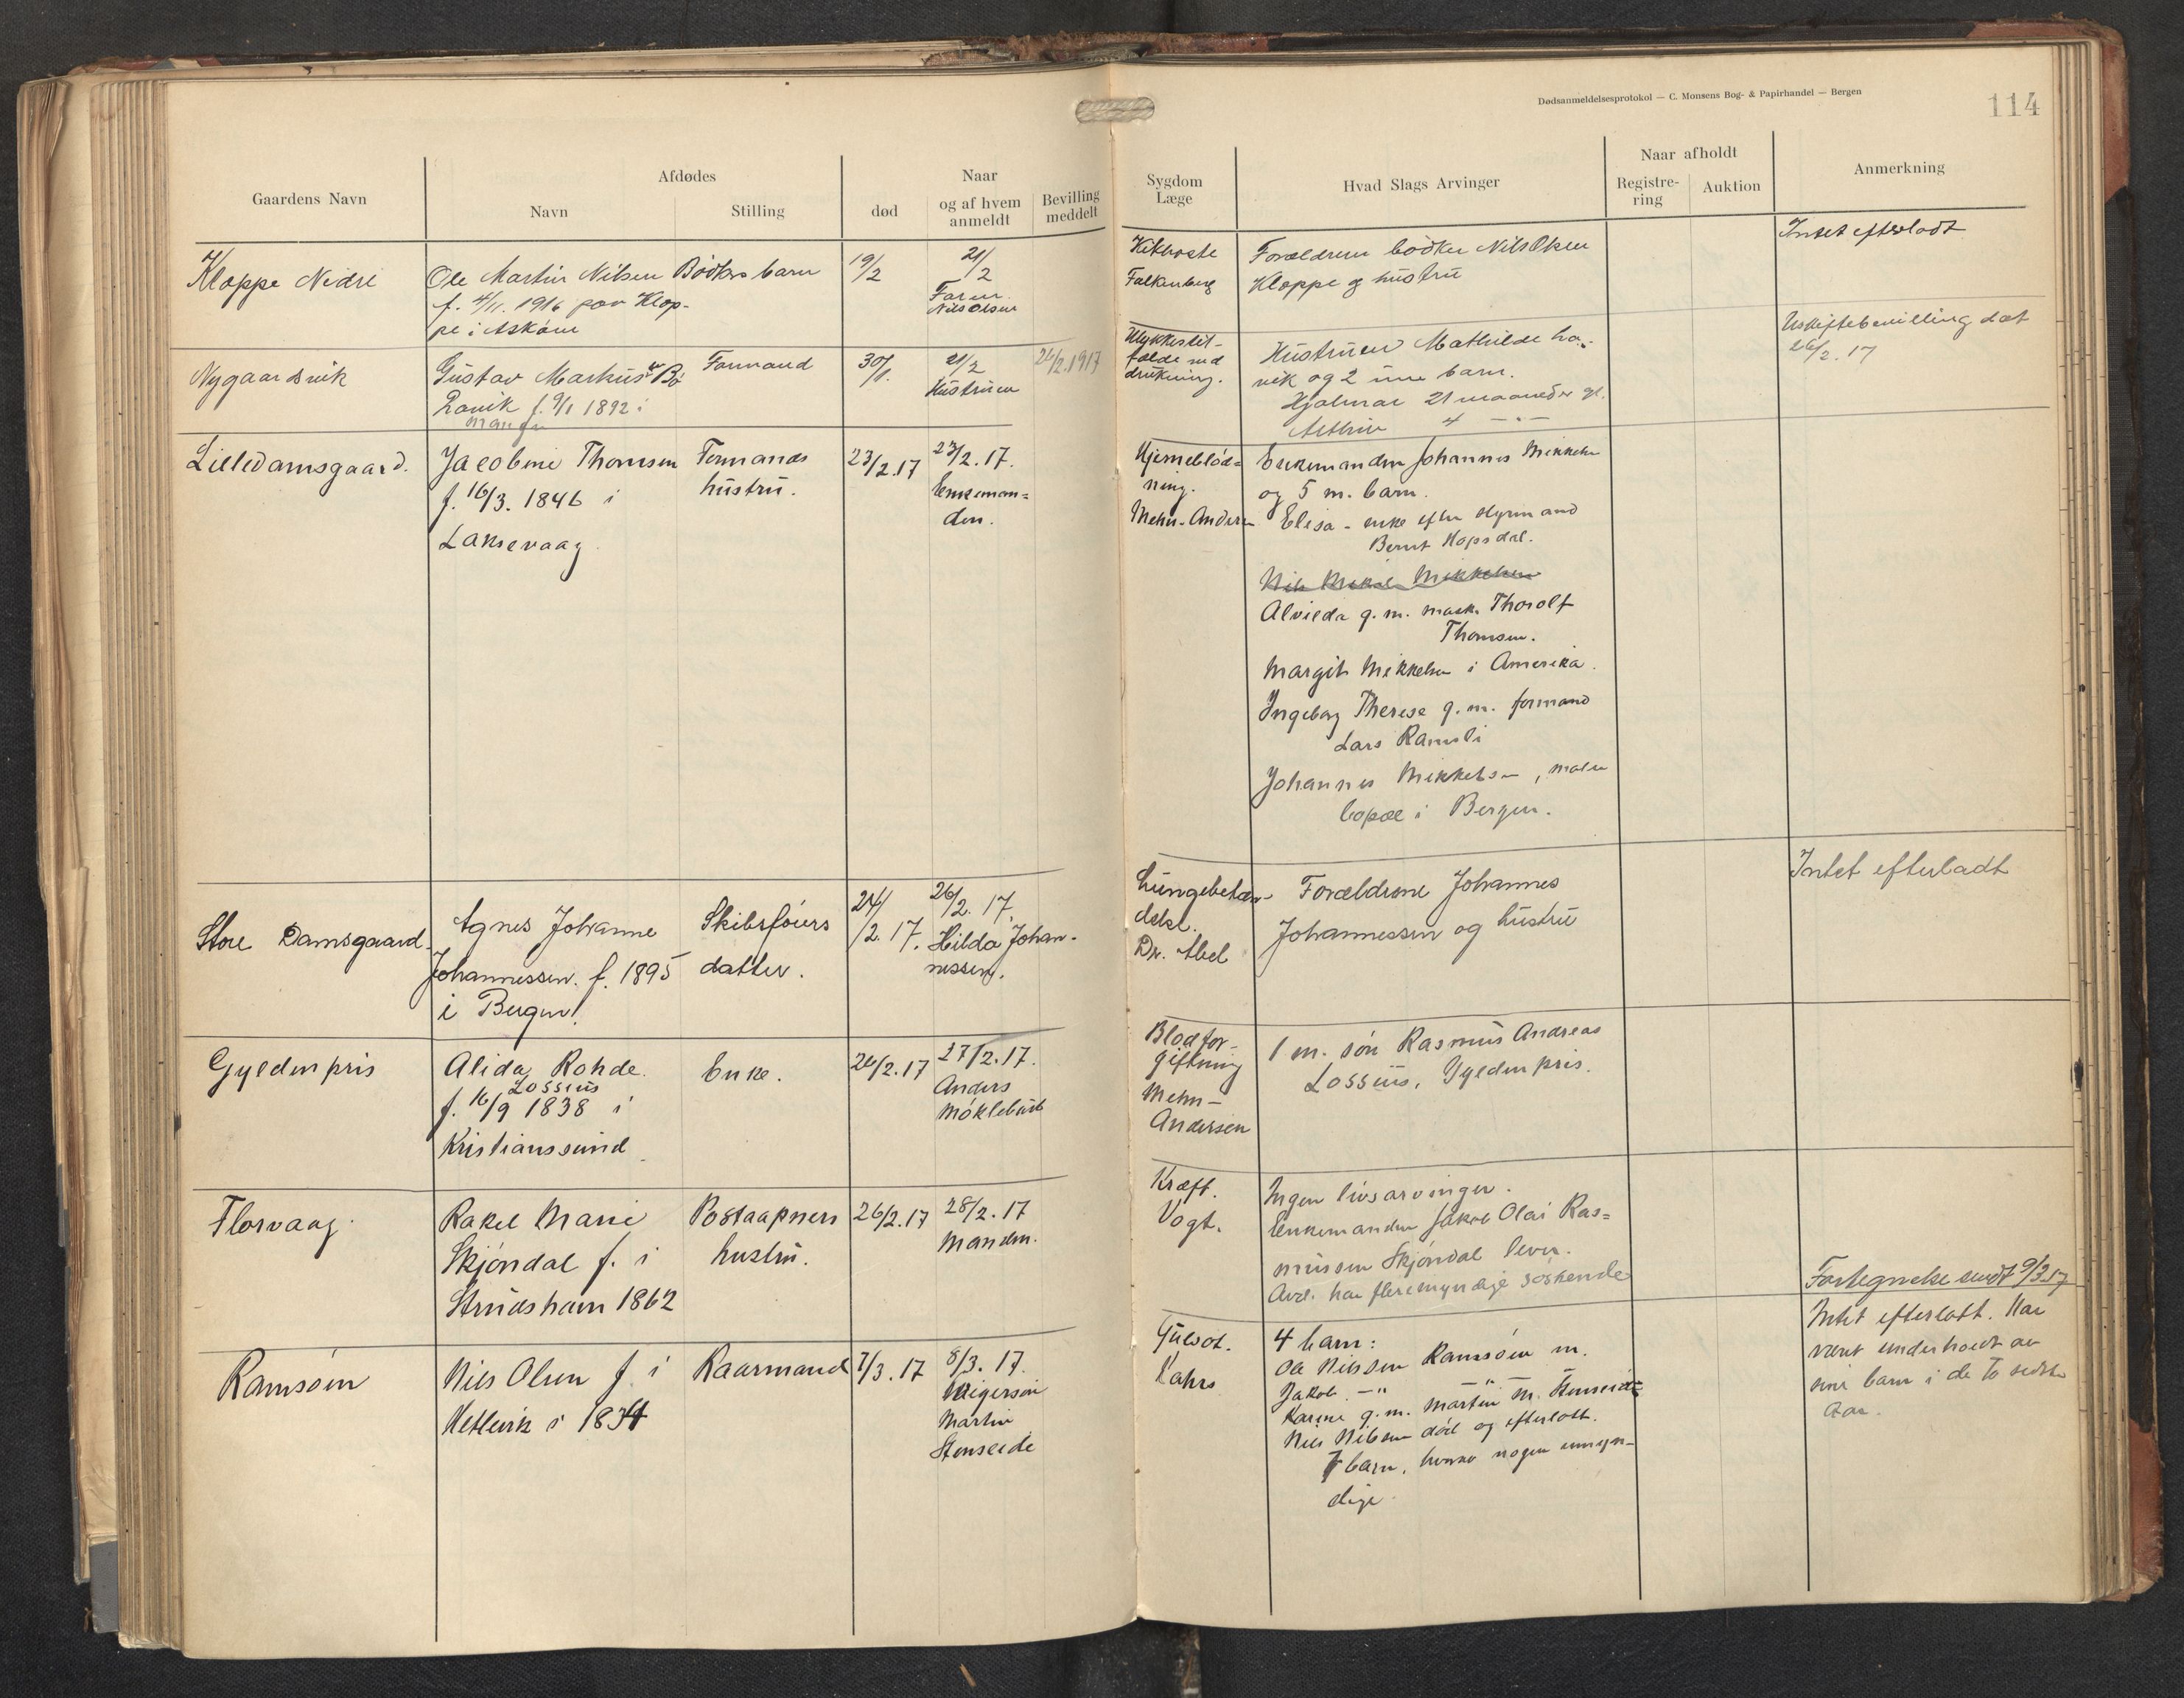 Dødsanmeldelsesprotokol — C. Monsens Bog- & Papirhandel — Bergen
114
Gaardens Navn
Afdødes
Navn
Stilling
Naar
død
og af hvem anmeldt
Bevilling meddelt
Sygdom
Læge
Hvad Slags Arvinger
Naar afholdt
Registre-
ring
Auktion
Anmerkning
Kloppe Nedre
Ole Martin Nilsen
f. 4/11. 1916 paa Klop-
pe i Askøen
Bødkers barn
19/2
21/2
Faren
Nils Olsen
Kikhoste
Falkenberg
Forældrene bødker Nils Olsen
Kloppe og hustru
Intet efterladt
Nygaardsvik
Gustav Markus
Ravik f. 9/1 1892 i
Manger
Formand
30/1.
21/2
Hustruen
26/2.1917
Ulykkestil-
fælde ved
drukning.
Hustruen Mathilde
vik og 2 um. barn.
Hjalmar 21 maaneder gl.
4 — " —
Uskiftebevilling dat
26/2. 17
Lilledamsgaard.
Jacobine Thomsen
f. 16/3. 1846 i
Laksevaag
Formands
hustru.
23/2.17
23/2.17.
Enkeman=
den.
Hjerneblød=
ning.
Mehn-Andersen
Enkemanden Johannes Mikkelsen
og 5 m. barn.
Elisa - enke efter styrmand
Bernt Hopsdal.
Nils Mikal Mikkelsen
Alvilda g. m. mask. Thorolf
Thomsen.
Margit Mikkelsen i Amerika.
Ingeborg Therese g. m. formand
Lars Ramsli
Johannes Mikkelsen, maler
bopæl i Bergen.
Store Damsgaard
Agnes Johanne
Johannessen. f. 1895
i Bergen.
Skibsføiers
datter.
24/2. 17.
26/2. 17.
Hilda Johan-
nessen.
Lungebetæn-
delse.
Dr. Abel
Forældrene Johannes
Johannessen og hustru
Intet efterladt
Gyldenpris
Alida Rohde
Lossius
f. 16/9 1838 i
Kristianssund
Enke.
26/2.17
27/2.17.
Anders
Møklebust
Blodfor-
giftning
Mehn-
Andersen
1 m. søn Rasmus Andreas
Lossius, Gyldenpris.
Florvaag
Rakel Marie
Skjøndal f. i
Strudshavn 1862
Postaapners
hustru.
26/2.17
28/2.17
Manden.
Kræft.
Vogt.
Ingen livsarvinger.
Enkemanden Jakob Olai Ras=
mussen Skjøndal lever.
Avd. har flere myndige søskende
Fortegnelse sendt 9/3.17
Ramsøen
Nils Olsen f. i
Hetlevik i 1834
Kaarmand
7/3.17
8/3.17.
Svigersøn
Martin
Stenseide
Gulsot.
Kahrs
4 barn:
Ole Nilssen Ramsøen m.
Jakob — " — — " — m.
Karine g. m. Martin Stenseide
Nils Nilsen død og efterlatt.
7 barn, hvorav nogen umyn-
dige.
Intet efterlatt. Har
været underholdt av
sine barn i de to sidste
Aar.